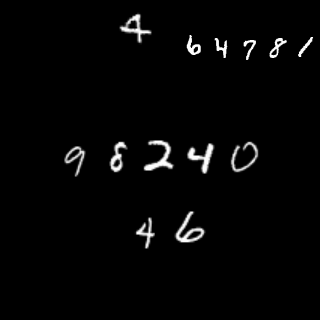 4
64781
98240
46